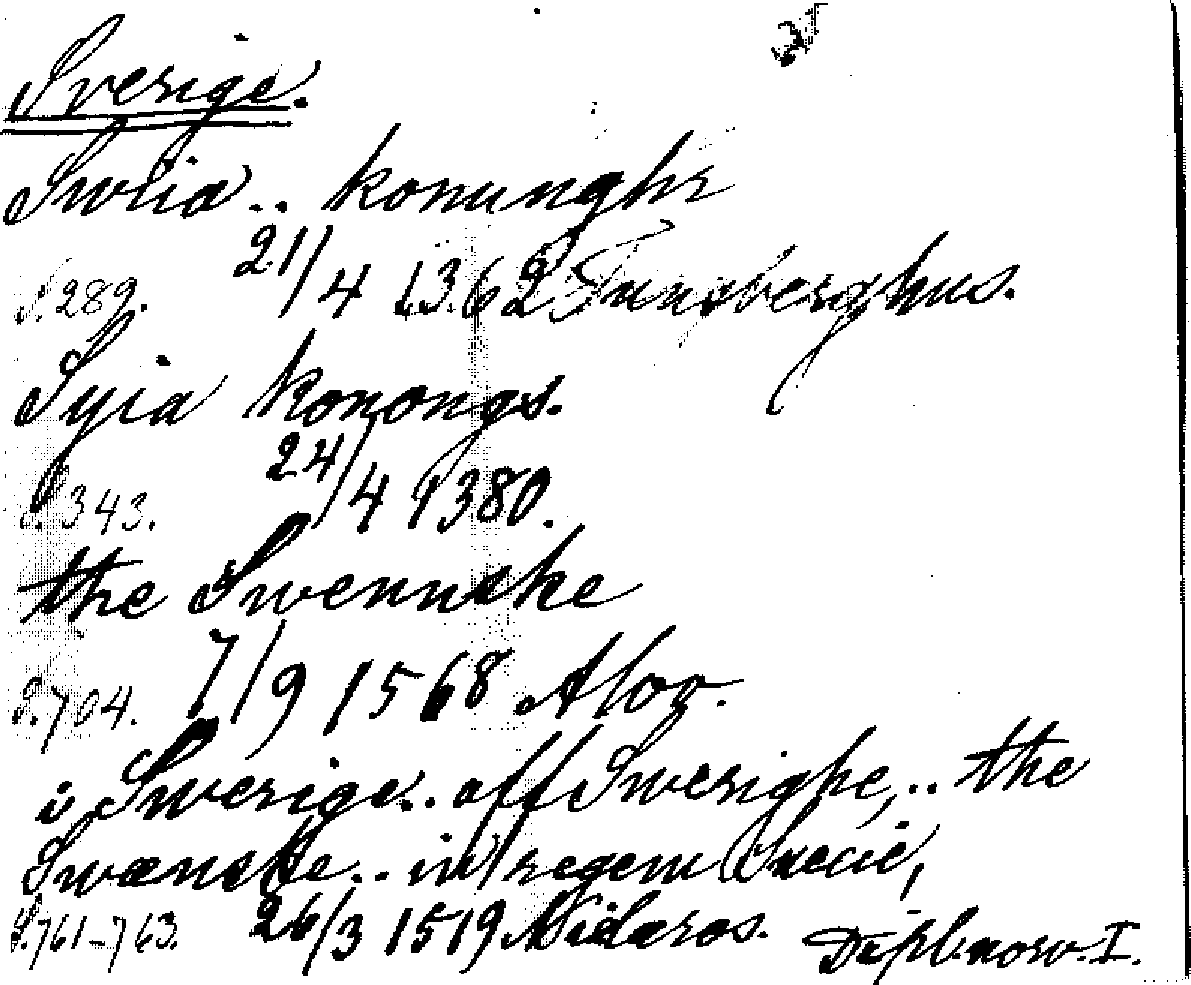 Sverige.
Swlia .. konunghr
S. 289. 21/4 1362 Tunsberghus.
Syia konongs.
S. 343. 24/4 1380.
the Swennske
S. 704. 7/9 1568
i Swerige .. aff Swerighe, .. the
Swænske .. in regem Suecie,
S. 761-763. 26/3 1519 Nidaros. Dipl. norv. I.